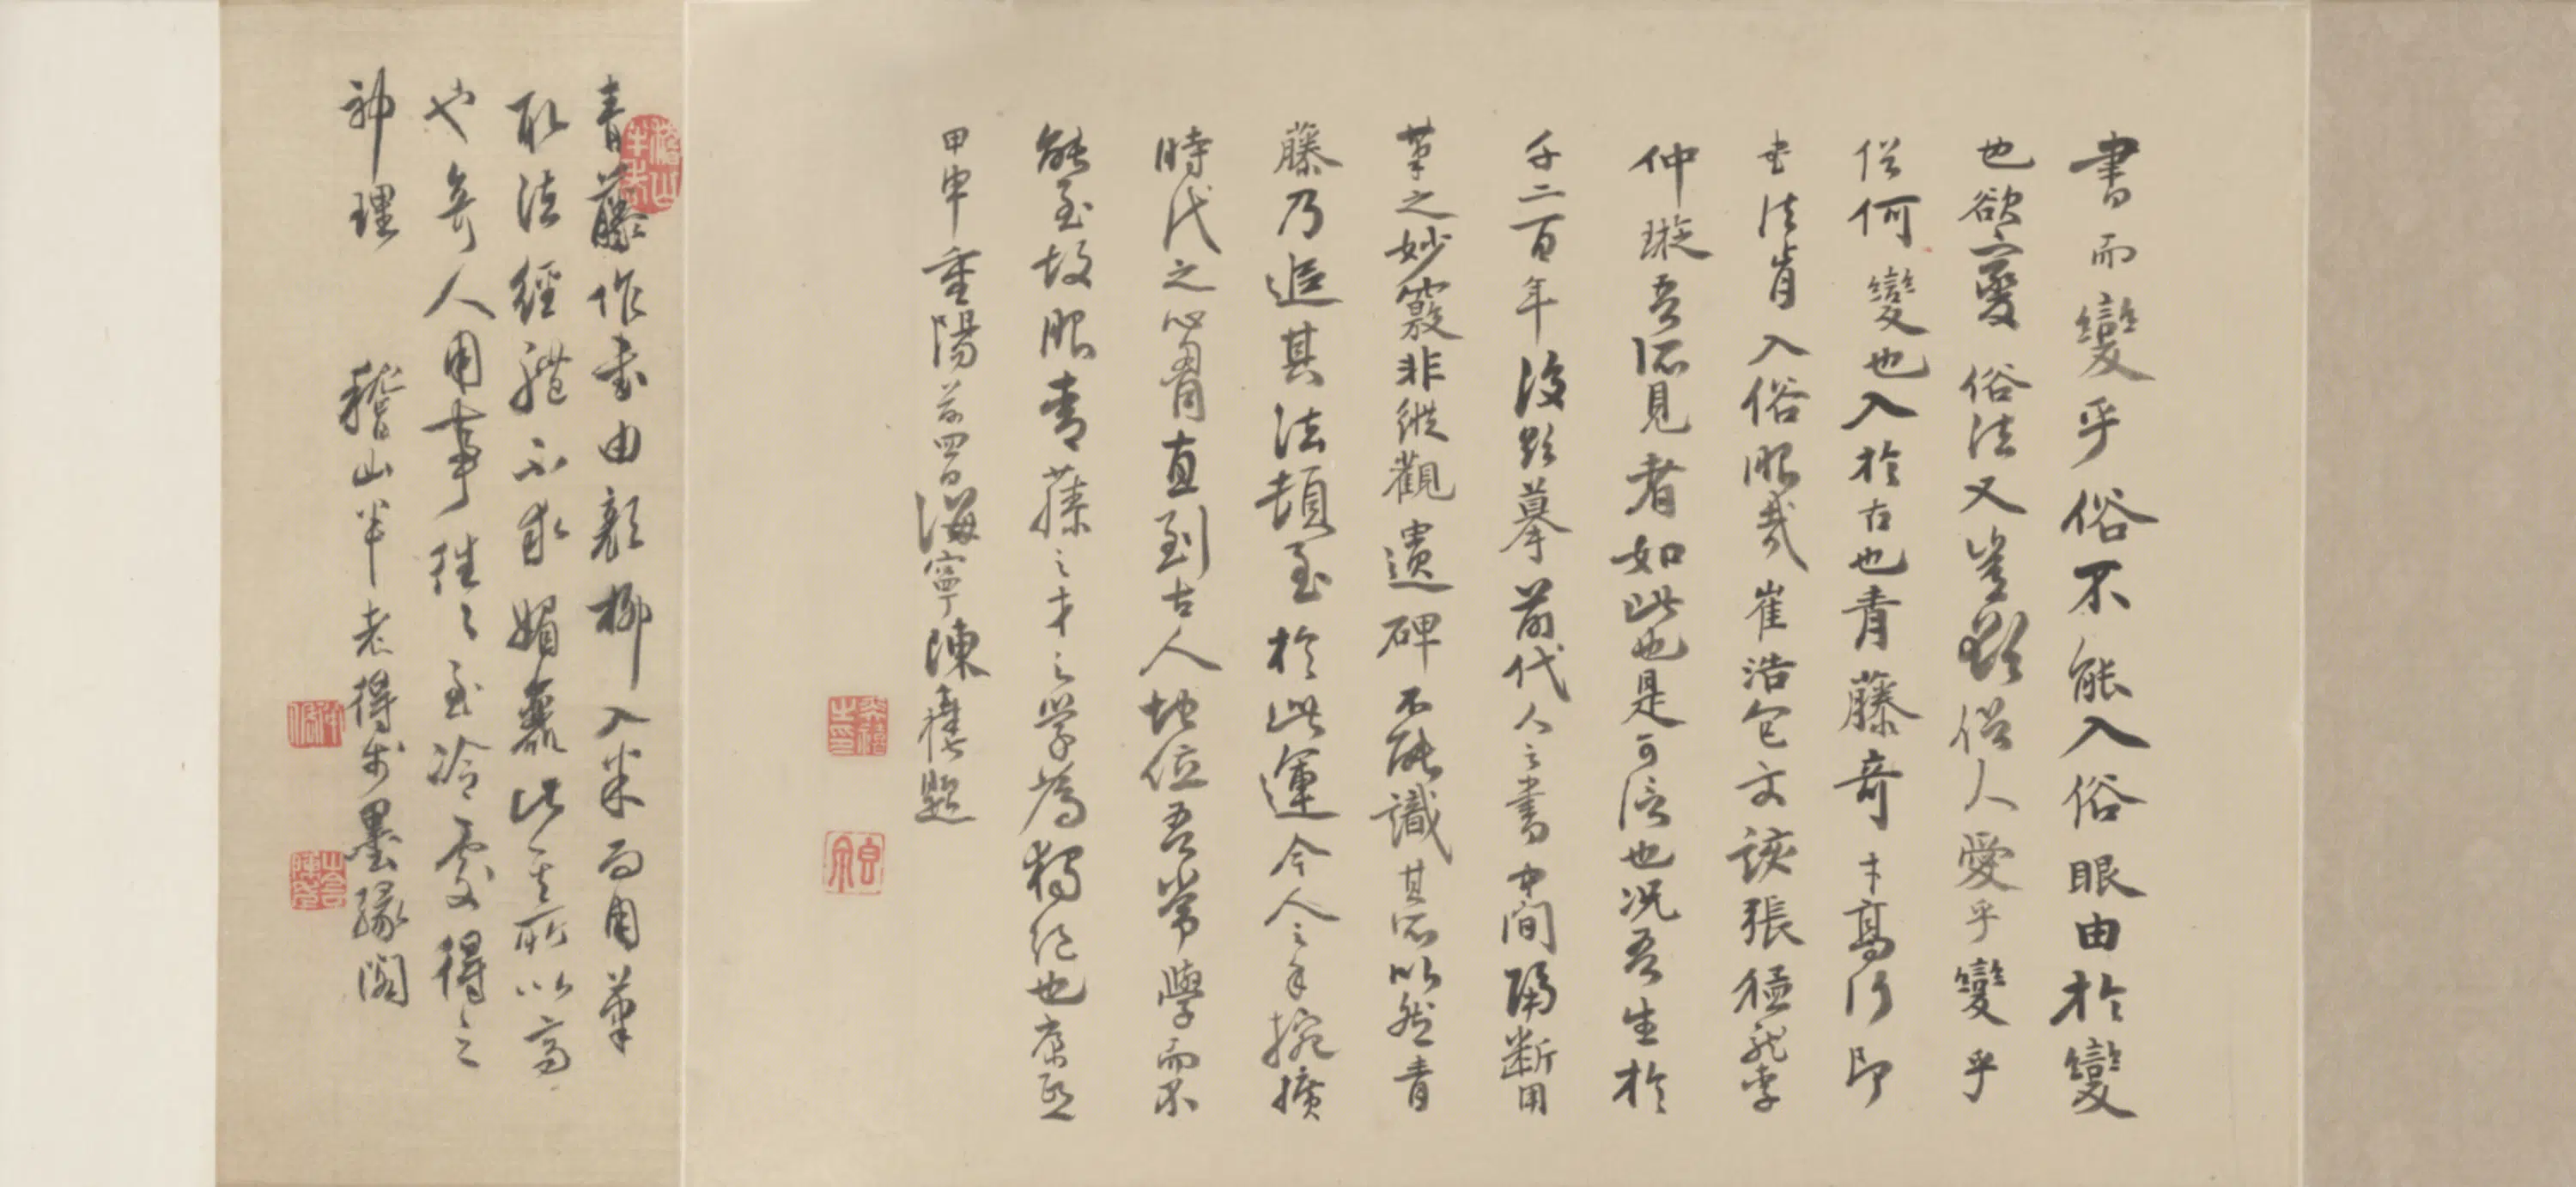 書而變乎俗不能入俗眼由於變
也欲變俗法又豈欺俗人愛乎變乎
俗何變也入於古也青藤奇才高行即
書法肯入俗眼哉崔浩包文該張猛龍李
仲璇吾所見者如此也是可信也況吾生於
千二百年後欲摹前代人之書中間隔斷用
筆之妙竅非縱觀遺碑不能識其所以然青
藤乃追其法頡至於此運今人之手挽擴
時代之心胃直到古人地位吾常學而不
能至故服青藤之才之學為獨絕也康熙
甲申重陽前四日海寧陳奕禧題
青藤作書由顏柳入米而用筆
取法經禮不求媚麗此其所以高
也奇人用事往往至冷處得之
神理 稽山半老得於墨緣閣